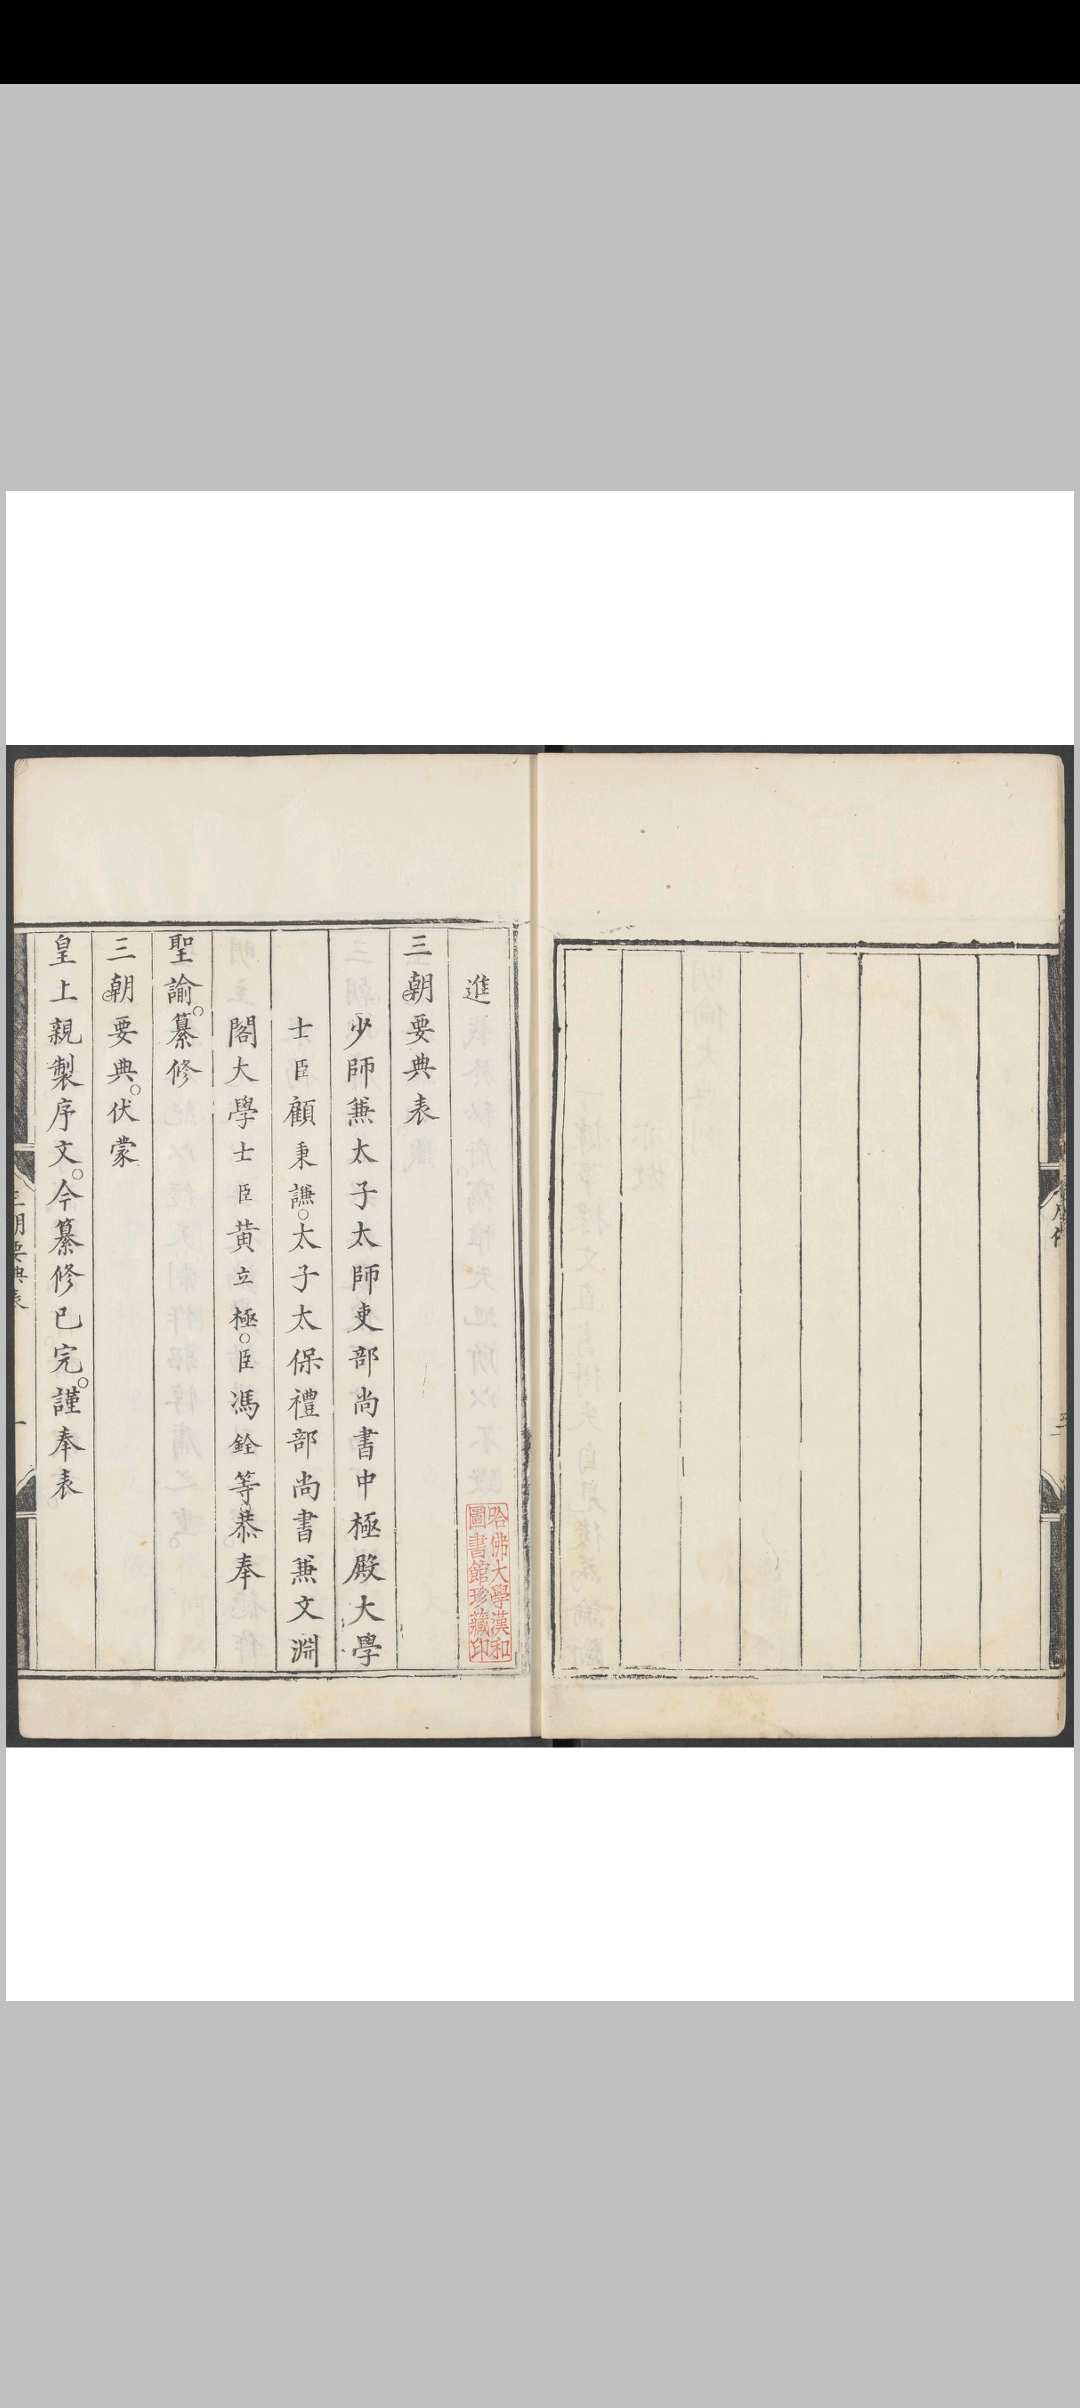 進
三朝要典表
少師兼太子太師吏部尚書中極殿大學
士臣顧秉謙。太子太保禮部尚書兼文淵
閣大學士臣黃立極。臣馮銓等。恭奉
聖諭。纂修
三朝要典。伏蒙
皇上親製序文。今纂修已完。謹奉表
三朝要典表
一
哈佛大學漢和
圖書館珍藏印